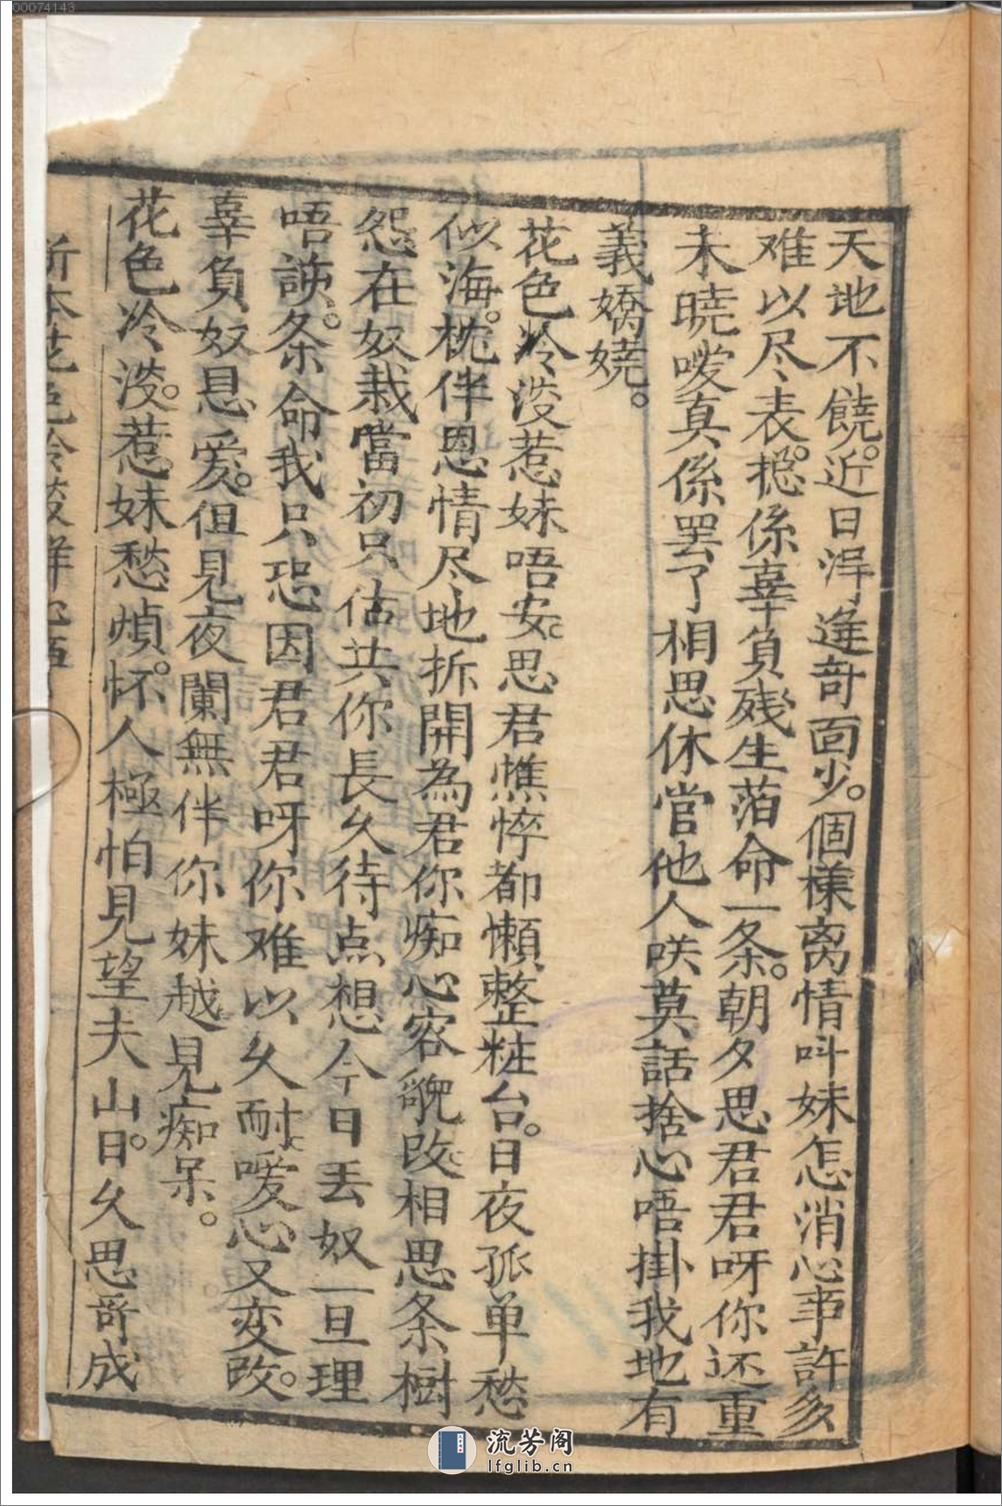 天地不饒。近日浔逢奇面少。個様离情呌妹怎消心事許多
难以尽表。捴係辜負残生萡命一条。朝夕思君君呀你还重
未曉嗳真係罢了相思休當他人咲莫話捨心唔掛我地有
義嬌嬈。
花色冷淡惹妹唔安。思君憔悴都懶整粧台。日夜孤单愁
似海。枕伴恩情尽地拆開為君你痴心容貌改。相思条樹
怨在奴栽當初只估共你長久待点想今日丟奴一旦理
唔該。条命我只恐因君君呀你难以久耐。嗳心又変改。
辜負奴恩爱。但見夜闌無伴你妹越見痴呆。
花色冷淡。惹妹愁煩。怀人極怕見望夫山。日久思奇成
新本花色冷淡
流芳阁
lfglib.cn
00074143